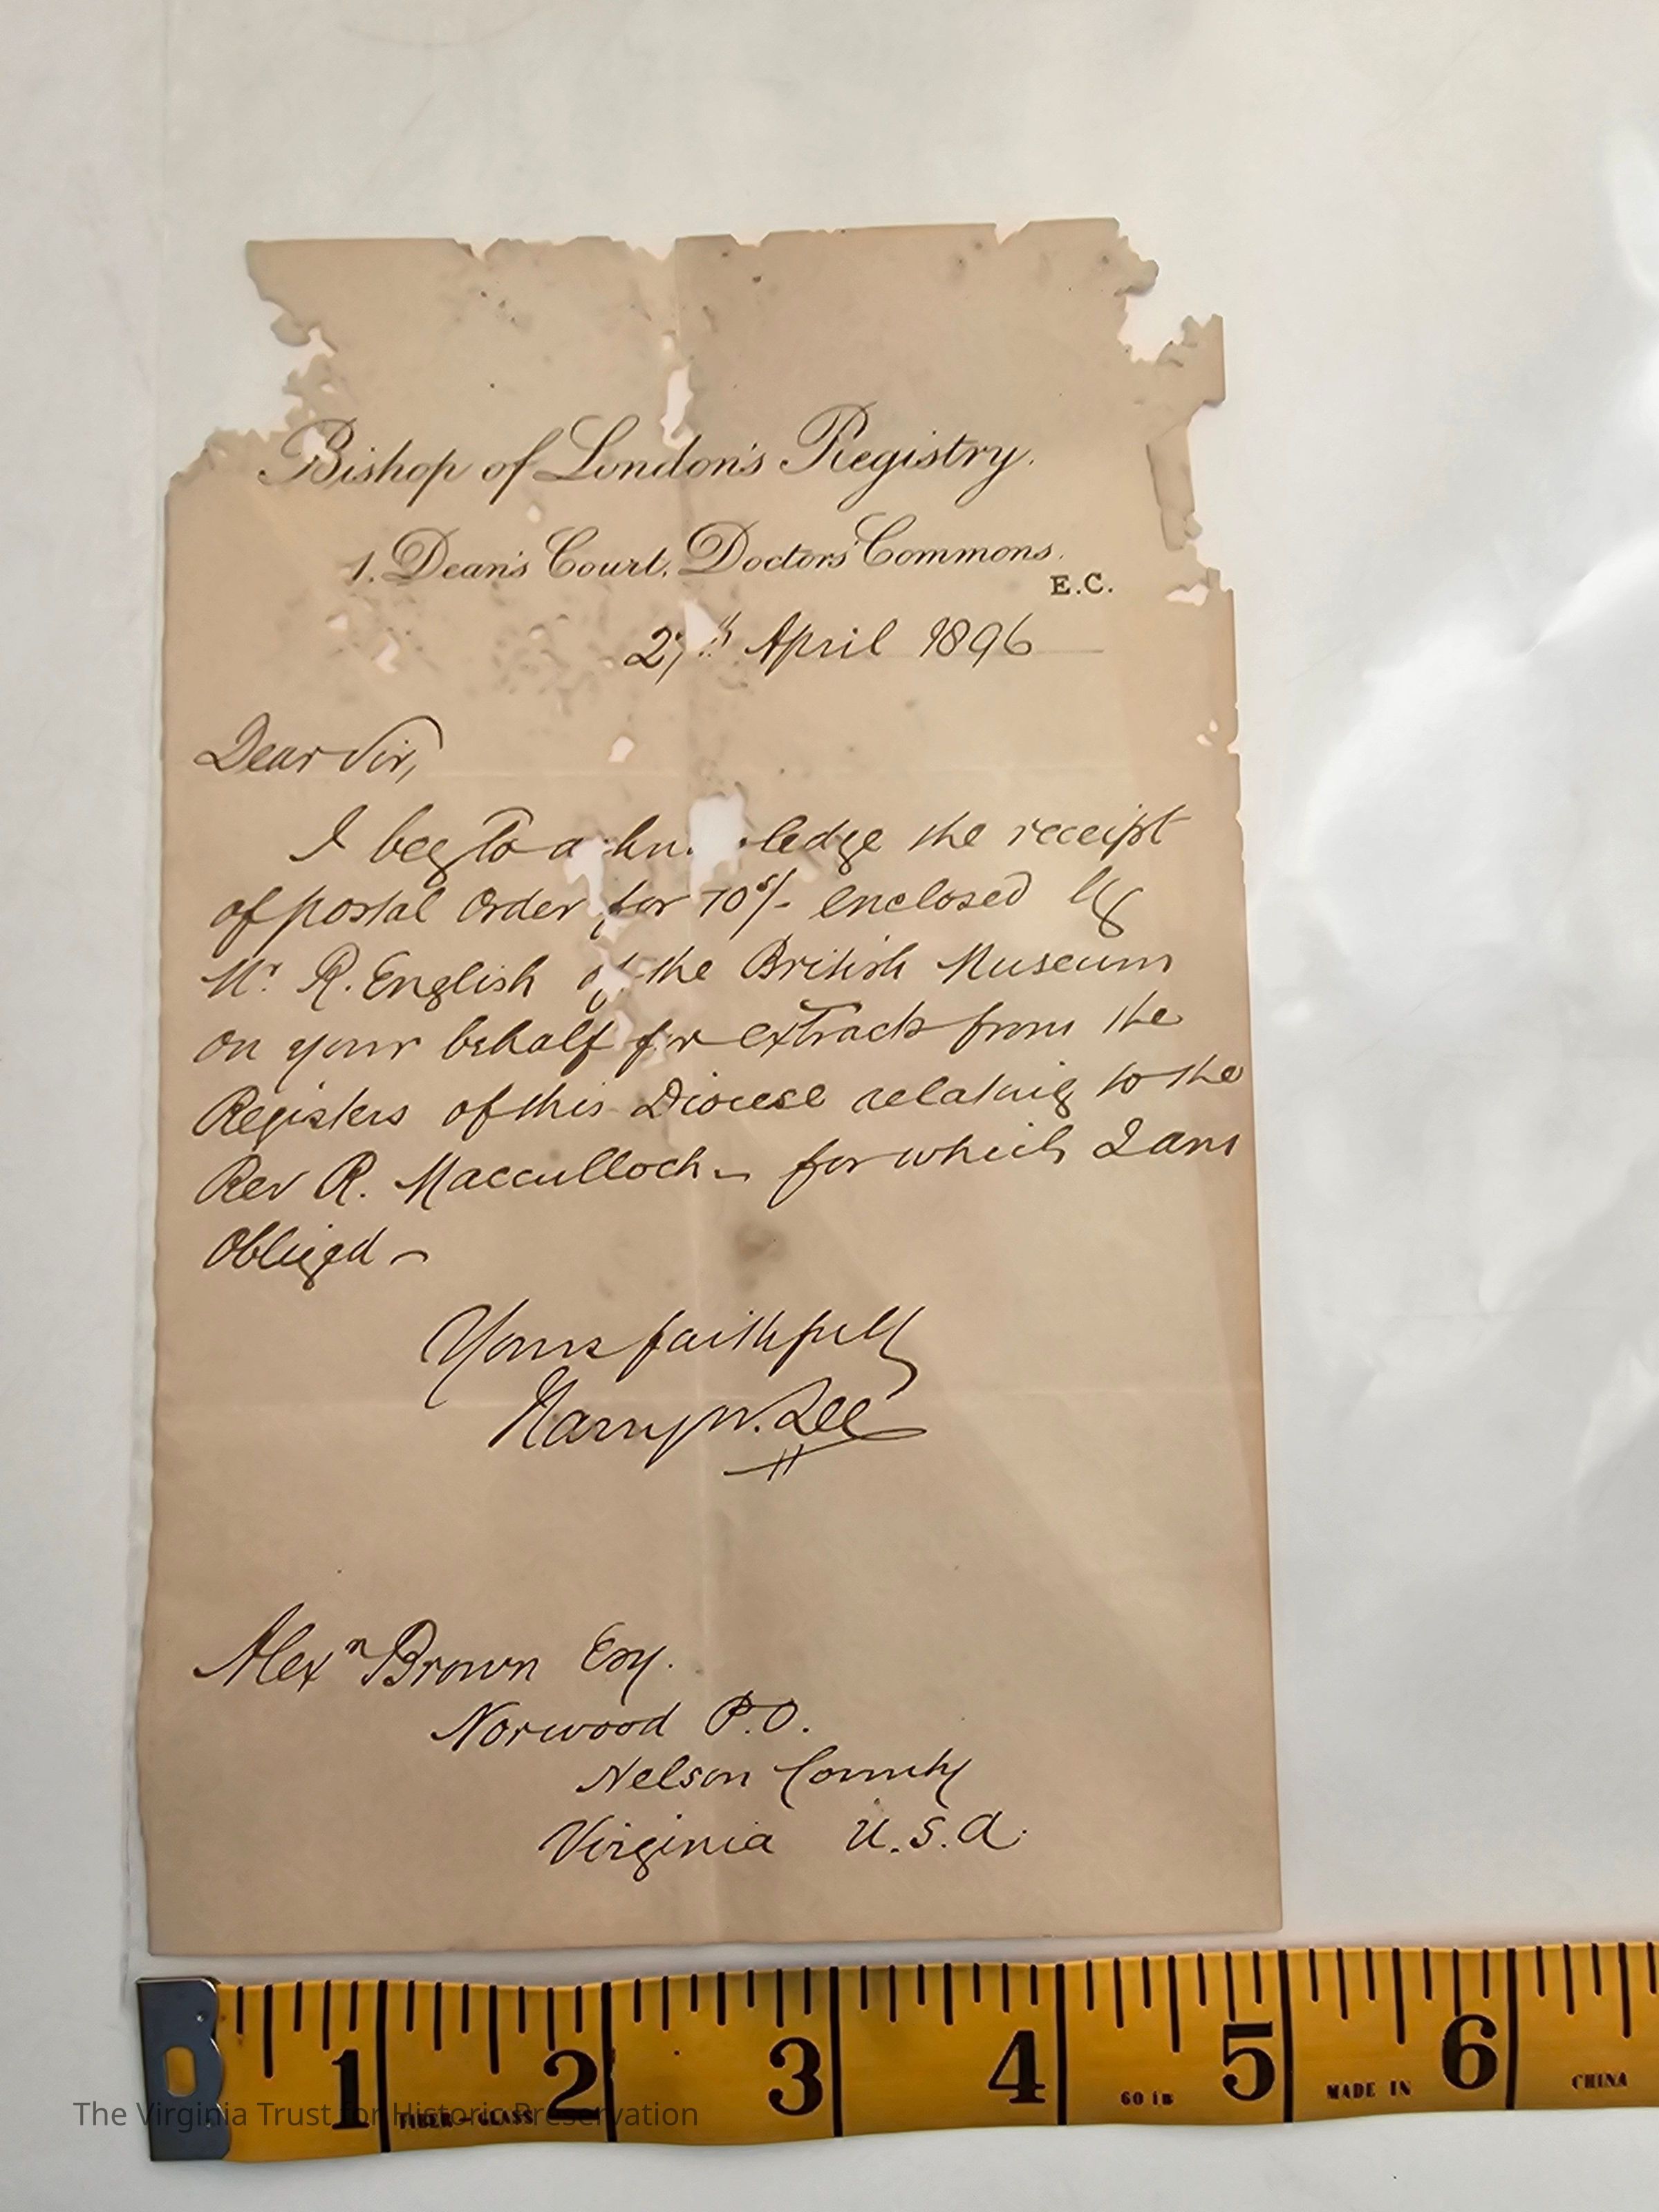 Bishop of London's Registry.
1. Dean's Court, Doctors' Commons.
E.C.
27th April 1896
Dear Sir,
I beg to a kn ledge the receipt
of postal Order for 70s/- enclosed by
Mr. R. English of the British Museum
on your behalf for extracts from the
Registers of this Diocese relating to the
Rev R. Macculloch – for which I am
Obliged –
Yours faithfully
Harry W. Lee
Alexr Brown Esq.
Norwood P.O.
Nelson County
Virginia U.S.A.
1 2 3 4 5 6
FIBER-GLASS 60 in MADE IN CHINA
The Virginia Trust for Historic Preservation